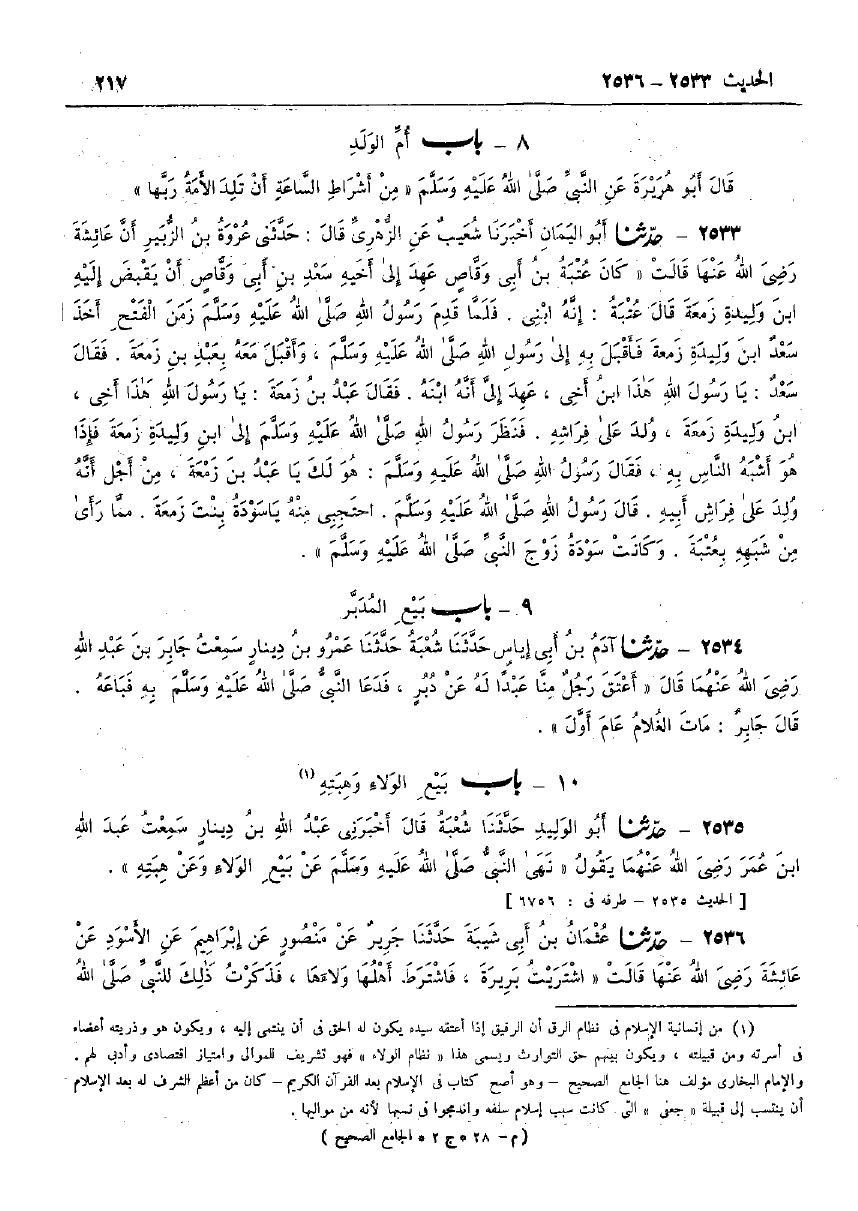 الحديث ٢٥٣٣ – ٢٥٣٦ ٢١٧
٨ – باب أُمِّ الوَلَدِ
قَالَ أَبُو هُرَيْرَةَ عَنِ النَّبِيِّ صَلَّى اللهُ عَلَيْهِ وَسَلَّمَ « مِنْ أَشْرَاطِ السَّاعَةِ أَنْ تَلِدَ الأَمَةُ رَبَّها »
٢٥٣٣ – حدّثنا أَبُو اليَمَانِ أَخْبَرَنَا شُعَيبٌ عَنِ الزُّهْرِيِّ قَالَ : حَدَّثَنِى عُرْوَةُ بنُ الزُّبَيرِ أَنَّ عَائِشَةَ
رَضِيَ اللهُ عَنْهَا قَالَتْ « كَانَ عُتْبَةُ بنُ أَبِى وَقَّاصٍ عَهِدَ إِلىٰ أَخِيهِ سَعْدِ بنِ أَبِى وَقَّاصٍ أَنْ يَقْبِضَ إِلَيْهِ
ابنَ وَلِيدَةِ زَمعَةَ قَالَ عُتْبَةُ : إِنَّهُ ابْنِى . فَلَمَّا قَدِمَ رَسُولُ اللهِ صَلَّى اللهُ عَلَيْهِ وَسَلَّمَ زَمَنَ الْفَتْحِ أَخَذَ
سَعْدٌ ابنَ وَلِيدَةِ زَمعةَ فَأَقْبَلَ بِهِ إِلىٰ رَسُولِ اللهِ صَلَّى اللهُ عَلَيْهِ وَسَلَّمَ ، وَأَقْبَلَ مَعَهُ بِعَبْدِ بنِ زَمعةَ . فَقَالَ
سَعْدٌ : يَا رَسُولَ اللهِ هٰذَا ابنُ أَخِى ، عَهِدَ إِلىَّ أَنَّهُ ابْنَهُ . فَقَالَ عَبْدُ بنُ زَمْعَةَ : يَا رَسُولَ اللهِ هٰذَا أَخِى ،
ابنُ وَلِيدَةِ زَمْعَةَ ، وُلِدَ عَلىٰ فِرَاشِهِ . فَنَظَرَ رَسُولُ اللهِ صَلَّى اللهُ عَلَيْهِ وَسَلَّمَ إِلىٰ ابنِ وَلِيدَةِ زَمعةَ فَإِذَا
هُوَ أَشْبَهُ النَّاسِ بِهِ ، فَقَالَ رَسُولُ اللهِ صَلَّى اللهُ عَلَيهِ وَسَلَّمَ : هُوَ لَكَ يَا عَبْدُ بنَ زَمْعَةَ ، مِنْ أَجْلِ أَنَّهُ
وُلِدَ عَلىٰ فِرَاشِ أَبِيهِ . قَالَ رَسُولُ اللهِ صَلَّى اللهُ عَلَيْهِ وَسَلَّمَ . احتَجِبِى مِنْهُ يَاسَوْدَةُ بِنْتَ زَمعةَ . ممَّا رَأَىٰ
مِنْ شَبَهِهِ بِعُتْبَةَ . وَكَانَتْ سَوْدَةُ زَوْجَ النَّبِىِّ صَلَّى اللهُ عَلَيْهِ وَسَلَّمَ » .
٩ – باب بَيْعِ المُدَبَّر
٢٥٣٤ – حدّثنا آدَمُ بنُ أَبى إِياسٍ حَدَّثَنَا شُعْبَةُ حَدَّثَنَا عَمْرُو بنُ دِينارٍ سَمِعْتُ جَابِرَ بنَ عَبْدِ اللهِ
رَضِىَ اللهُ عَنْهُمَا قَالَ « أَعْتَقَ رَجُلٌ مِنَّا عَبْدًا لَهُ عَنْ دُبُرٍ ، فَدَعَا النَّبِىُّ صَلَّى اللهُ عَلَيْهِ وَسَلَّمَ بِهِ فَبَاعَهُ .
قَالَ جَابِرٌ : مَاتَ الغُلامُ عَامَ أَوَّلَ » .
١٠ – باب بَيْعِ الوَلاءِ وَهِبَتِهِ (١)
٢٥٣٥ – حدّثنا أَبُو الوَلِيدِ حَدَّثَنَا شُعْبَةُ قَالَ أَخْبَرَنِى عَبْدُ اللهِ بنُ دِينارٍ سَمِعْتُ عَبدَ اللهِ
ابنَ عُمَرَ رَضِىَ اللهُ عَنْهُمَا يَقُولُ « نَهَىٰ النَّبِىُّ صَلَّى اللهُ عَلَيهِ وَسَلَّمَ عَنْ بَيْعِ الوَلاءِ وَعَنْ هِبَتِهِ » .
[ الحديث ٢٥٣٥ – طرفه فى : ٦٧٥٦ ]
٢٥٣٦ – حدّثنا عُثْمَانُ بنُ أَبِى شَيبَةَ حَدَّثَنَا جَرِيرٌ عَنْ مَنْصُورٍ عَنِ إِبْرَاهِيمَ عَنِ الأَسْوَدِ عَنْ
عَائِشَةَ رَضِىَ اللهُ عَنْهَا قَالَتْ « اشْتَرَيْتُ بَرِيرَةَ ، فَاشْتَرَطَ. أَهْلُهَا وَلاءَهَا ، فَذَكَرْتُ ذٰلِكَ للنَّبِىِّ صَلَّى اللهُ
(١) من إنسانية الإسلام فى نظام الرق أن الرقيق إذا أعتقه سيده يكون له الحق فى أن ينتمى إليه ، ويكون هو وذريته أعضاء
فى أسرته ومن قبيلته ، ويكون بينهم حق التوارث ويسمى هذا « نظام الولاء » فهو تشريف للموالى وامتياز اقتصادى وأدبى لهم .
والإمام البخارى مؤلف هذا الجامع الصحيح – وهو أصح كتاب فى الإسلام بعد القرآن الكريم – كان من أعظم الشرف له بعد الإسلام
أن ينتسب إلى قبيلة « جعفى » التى كانت سبب إسلام سلفه واندمجوا فى نسبها لأنه من مواليها .
(م – ٢٨ * ج ٢ * الجامع الصحيح )